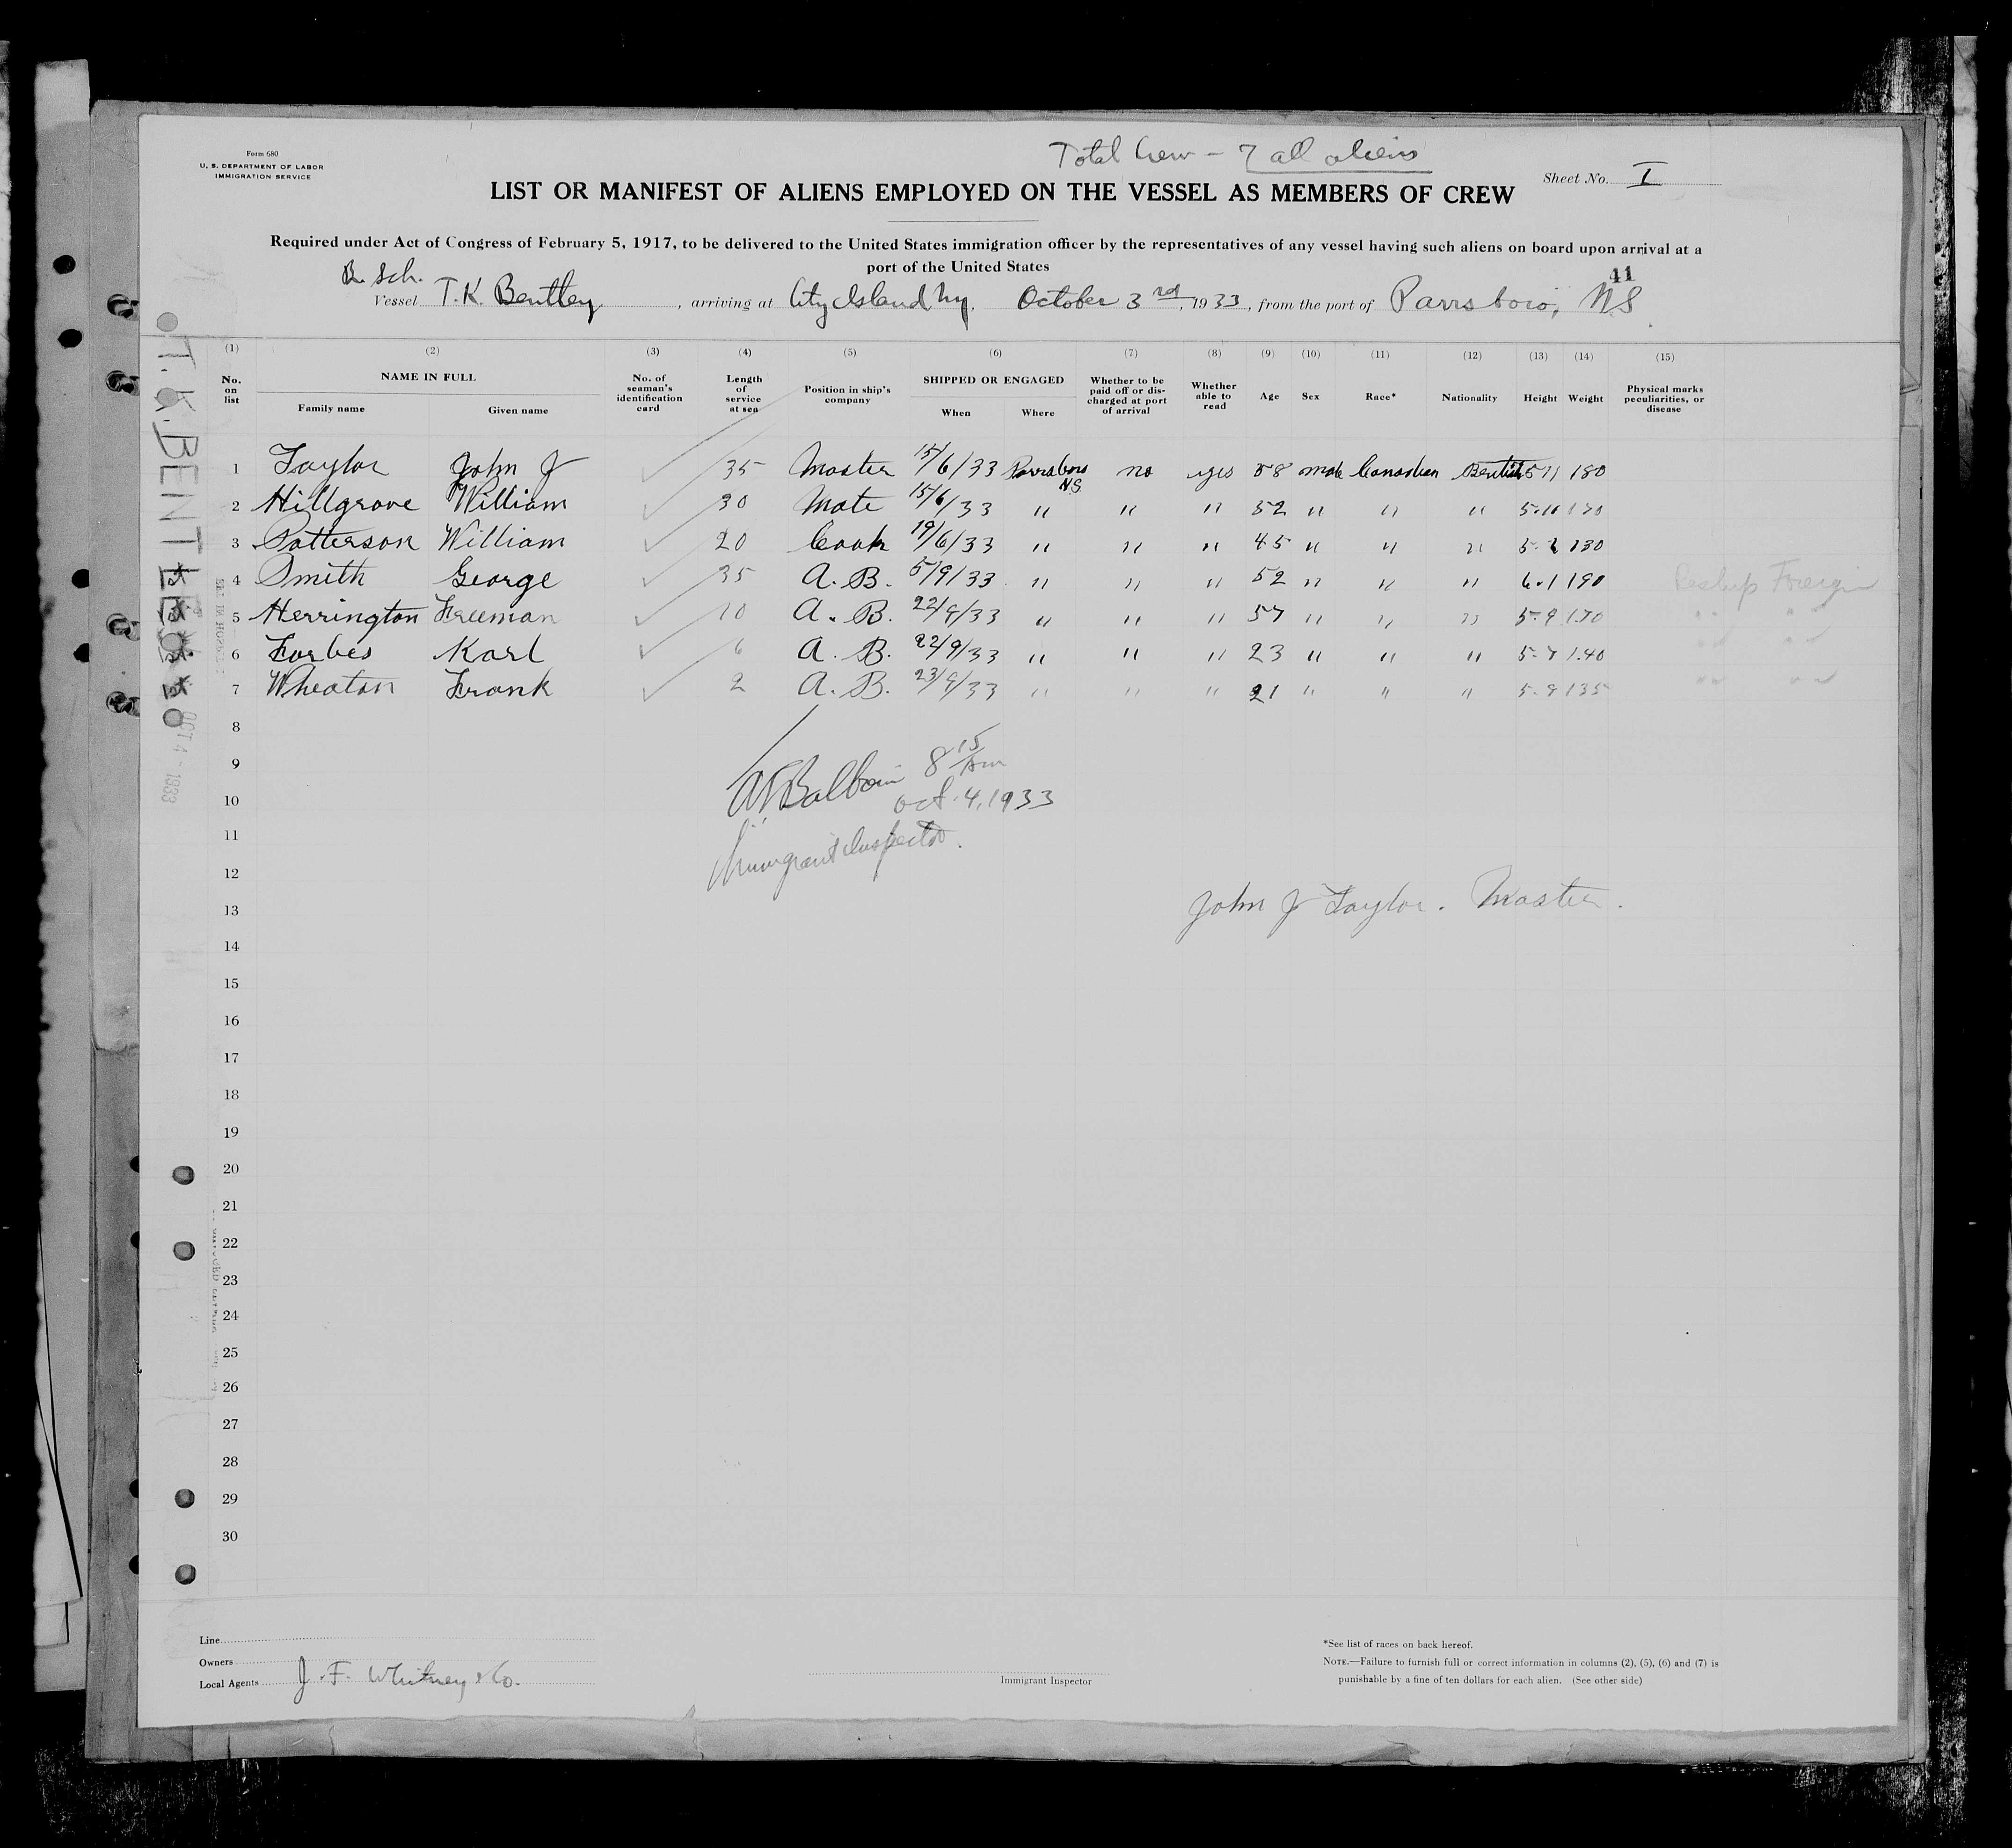 Form 680
U. S. DEPARTMENT OF LABOR
IMMIGRATION SERVICE
Total Crew - 7 all aliens
Sheet No. I
LIST OR MANIFEST OF ALIENS EMPLOYED ON THE VESSEL AS MEMBERS OF CREW
Required under Act of Congress of February 5, 1917, to be delivered to the United States immigration officer by the representatives of any vessel having such aliens on board upon arrival at a
port of the United States
41
Sch.
Vessel T.K. Bentley, arriving at City Island Ny, October 3rd, 1933, from the port of Parrsboro, NS
(1) (2) (3) (4) (5) (6) (7) (8) (9) (10) (11) (12) (13) (14) (15)
No. on list NAME IN FULL Family name Given name No. of seaman's identification card Length of service at sea Position in ship's company SHIPPED OR ENGAGED When Where Whether to be paid off or discharged at port of arrival Whether able to read Age Sex Race* Nationality Height Weight Physical marks peculiarities, or disease
1 Taylor John J 35 Master 15/6/33 Parrsboro NS no yes 58 male Canadian British 5 11 180
2 Hillgrove William 30 Mate 15/6/33 " " " 52 " " " 5.10 170
3 Patterson William 20 Cook 19/6/33 " " " 45 " " " 130
4 Smith George 35 A. B. 5/9/33 " " " 52 " " " 6.1 190 Foreign
5 Herrington Freeman 10 A. B. 22/9/33 " " " 57 " " " 5-9 170 " "
6 Forbes Karl 6 A. B. 22/9/33 " " " 23 " " " 5-7 140 " "
7 Wheaton Frank 2 A. B. 23/9/33 " " " 21 " " " 5-9 135 " "
8
9
10
11
12
13
14
15
16
17
18
19
20
21
22
23
24
25
26
27
28
29
30
8 15
Oct. 4, 1933
Immigrant Inspector.
John J Taylor. Master.
T. K. BENTLEY
OCT 4 - 1933
Line
Owners
Local Agents J. F. Whitney & Co.
Immigrant Inspector
*See list of races on back hereof.
NOTE.—Failure to furnish full or correct information in columns (2), (5), (6) and (7) is
punishable by a fine of ten dollars for each alien. (See other side)